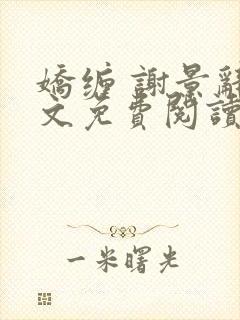 嬌缠 謝景辭
文免費閱讀
一米曙光